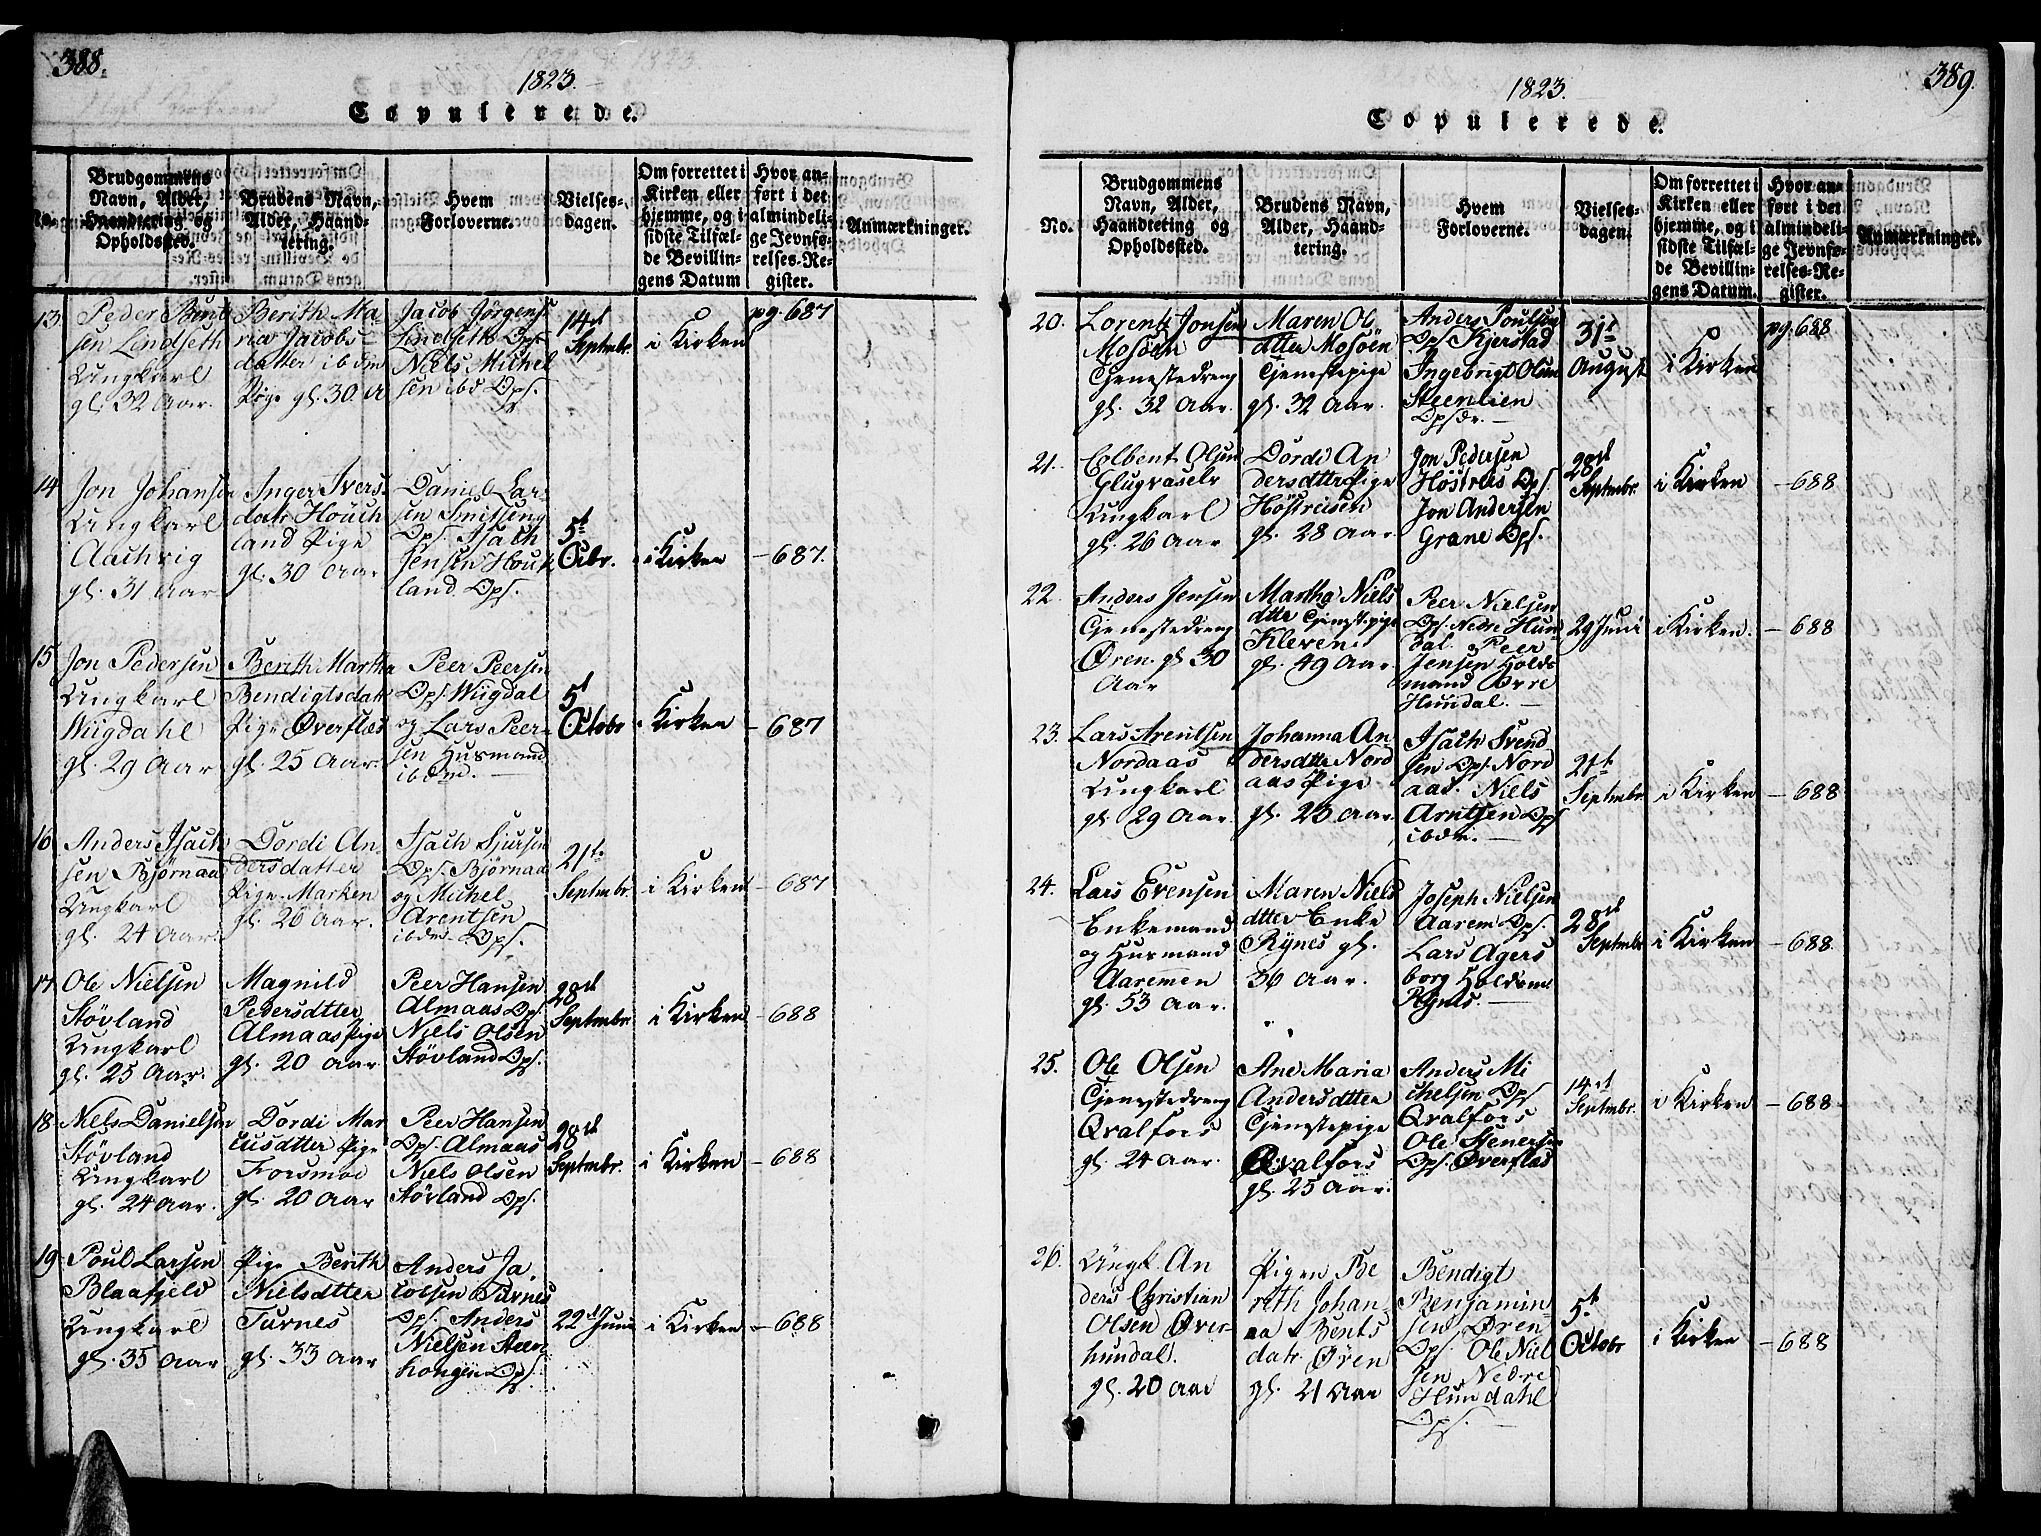 388.
1823.
Copulerede.
No.
Brudgommens
Navn, Alder,
Haandtering og
Opholdssted.
Brudens Navn,
Alder, Haand-
tering.
Hvem
Forloverne.
Vielses-
dagen.
Om forrettet i
Kirken eller
hjemme, og i
sidste Tilfæl-
de Bevillin-
gens Datum
Hvor an-
ført i det
almindeli-
ge Jevnfø-
relses-Re-
gister.
Anmærkninger.
13
Peder Bent
sen Lindseth
Ungkarl
gl. 32 Aar.
Berith Ma-
ria Jacobs-
datter ibdm
Pige gl. 30 A
Jacob Jørgens
Lindseth Ops.
Niels Michel
sen ibd Ops.
14d
Septembr.
i Kirken
pg. 687
14
Jon Johansen
Ungkarl
Aachvig
gl. 31 Aar
Inger Ivers-
datr Höuch
land Pige
gl. 30 Aar
Daniel Lar-
sen Smisseng
Ops. Isach
Jensen Houk
land. Ops.
5t
Octbr.
i Kirken
- 687.
15
Jon Pedersen
Ungkarl
Wiigdahl
gl. 29 Aar
Berith Martha
Bendigtsdatt
Pige Øverfløs
gl. 25 Aar.
Peer Peersen
Ops. Wiigdal
og Lars Peer-
sen Husmand
ibdm.
5t
Octobr
i Kirken
- 687
16
Anders Isach
sen Bjørnaa
Ungkarl
gl. 24 Aar.
Dordi An-
dersdatter
Pige Marken
gl. 26 Aar.
Isach Sjursen
Ops. Bjørnaa
og Michel
Arentsen
ibdm. Ops.
21t
Septembr.
i Kirken
- 687
17
Ole Nielsen
Støvland
Ungkarl
gl. 25 Aar.
Magnild
Pedersdtter
Almaas Pige
gl. 20 Aar.
Peer Hansen
Almaas Ops.
Niels Olsen
Støvland Ops.
28d
Septembr.
i Kirken
- 688
18
Niels Danielsen
Støvland
Ungkarl
gl. 24 Aar.
Dordi Mar
cusdtter Pige
Forsmoe
gl. 20 Aar
Peer Hansen
Ops. Almaas
Niels Olsen
Støvland Ops.
28d
Septembr.
i Kirken
- 688
19
Poul Larsen
Blaafjeld
Ungkarl
gl. 35 Aar
Pige Berith
Nielsdtter
Turnes
gl. 33 Aar
Anders Ja
cobsen Turnes
Ops. Anders
Nielsen Steen
hongen Ops.
22d Juni
i Kirken
- 688
389.
1823.
Copulerede.
No.
Brudgommens
Navn, Alder,
Haandtering og
Opholdssted.
Brudens Navn,
Alder, Haand-
tering.
Hvem
Forloverne.
Vielses-
dagen.
Om forrettet i
Kirken eller
hjemme, og i
sidste Tilfæl-
de Bevillin-
gens Datum.
Hvor an-
ført i det
almindeli-
ge Jevnfø-
relses-Re-
gister.
Anmærkninger.
20.
Lorentz Jonsen
Mosöen
Tjenestedreng
gl. 32 Aar.
Maren Ol
dtter Mosöen
Tjenstepige
gl. 32 Aar.
Anders Poulsen
Ops. Kjerstad
Ingebrigt Olsen
Steenlien
31t
August
i Kirken
pg. 688
21.
Colbent Olsen
Glugvaselv
Ungkarl
gl. 26 Aar
Dordi An
dersdtter Pige
Höstreisen
gl. 28 Aar.
Jon Pedersen
Höstreis Ops.
Jon Andersen
Grane Ops.
28d
Septembr.
i Kirken
- 688
22.
Anders Jensen
Tjenestedreng
Øren gl. 30
Aar
Martha Niels
dtter Tjenstepige
Kleven
gl. 49 Aar.
Peer Nielsen
Ops. Nedre Hun
dal. Peer
Jensen Holds
mand Øvre
Hundal.
29 Juni
i Kirken.
- 688
23.
Lars Arentsen
Nordaas
Ungkarl
gl. 29 Aar.
Johanna An
dersdtter Nord
aas Pige
gl. 26 Aar.
Isach Svend
sen Ops. Nord
aas. Niels
Arntsen Ops
ibdm.
21t
Septembr
i Kirken
- 688
24.
Lars Evensen
Enkemand
og Husmand
Aaremen
gl. 53 Aar.
Maren Niels
dtter Enke
Rynes gl.
36 Aar.
Joseph Nielsen
Aarem Ops.
Lars Agers
borg Holdsmd
Rynes.
28d
Septembr
i Kirken
- 688.
25.
Ole Olsen
Tjenestedreng
Qvalfors
gl. 24 Aar.
Ane Maria
Andersdtter
Tjenstepige
Qvalfors
gl. 25 Aar.
Anders Mi
chelsen Ops
Qvalfors
Ole Stenersen
Ops. Øverfløs
14d
Septembr.
i Kirken
- 688
26.
Ungk. An
ders Christian
Olsen Øver-
hundal.
gl. 20 Aar
Pigen Be
reth Johan-
na Bents
datr. Øren
gl. 21 Aar
Bendigt
Benjamin-
sen Øren
Ops. Ole Niel
sen Nedre
Hundahl
Ops.
5t
Octobr
i Kirken
- 688